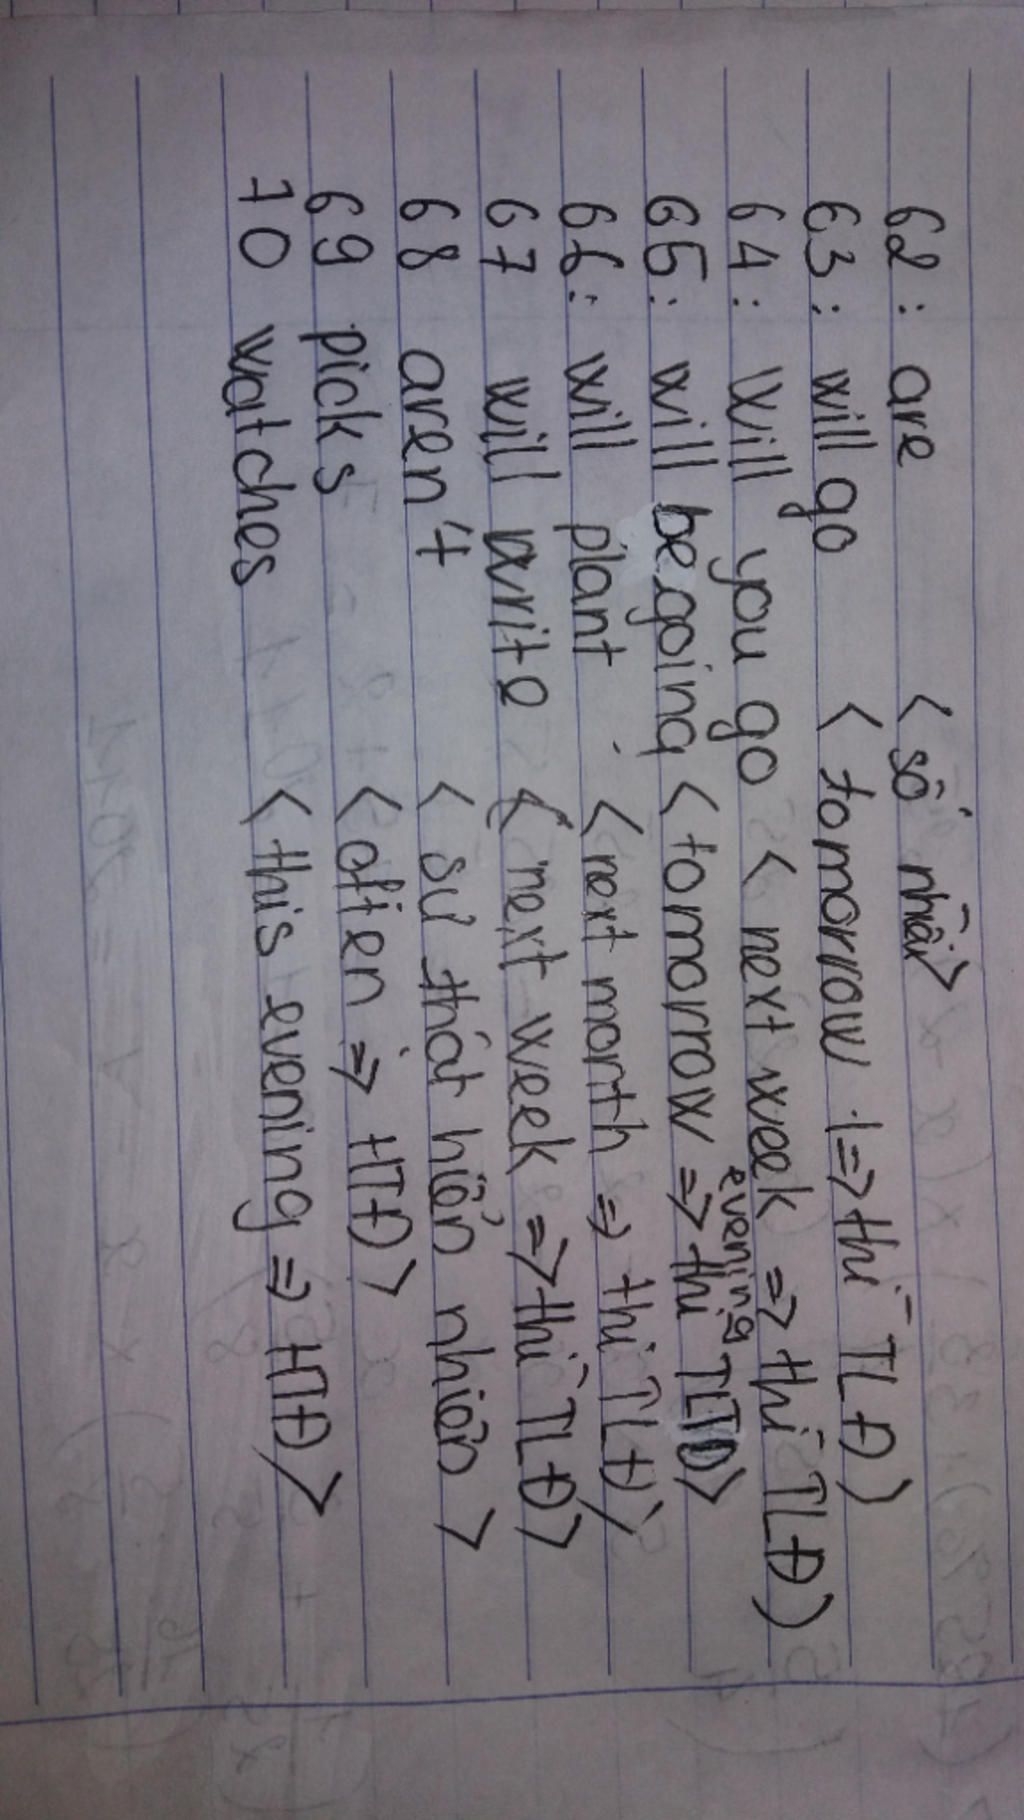 62 : are < số nhiều>
63 : will go < tomorrow => thì TLĐ)
64 : Will you go < next week => thì TLĐ)
65 : will be going < tomorrow evening => thì TLTD>
66 : will plant < next month => thì TLĐ>
67 will write < next week => thì TLĐ>
68 aren't < sự thật hiển nhiên >
69 picks < often => HTĐ >
70 watches < this evening => HTĐ >